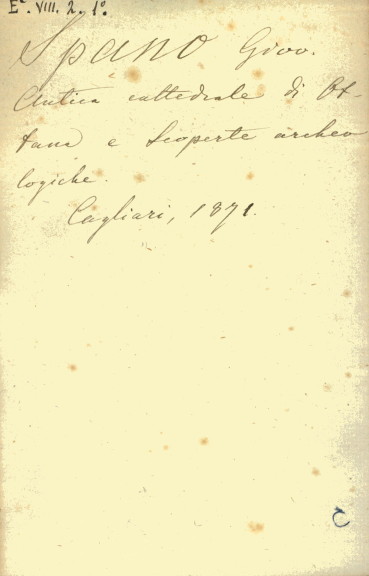 E². VIII. 2. 1º
Spano Giov.
Antica cattedrale di Ot-
tana e Scoperte archeo
logiche.
Cagliari, 1871.